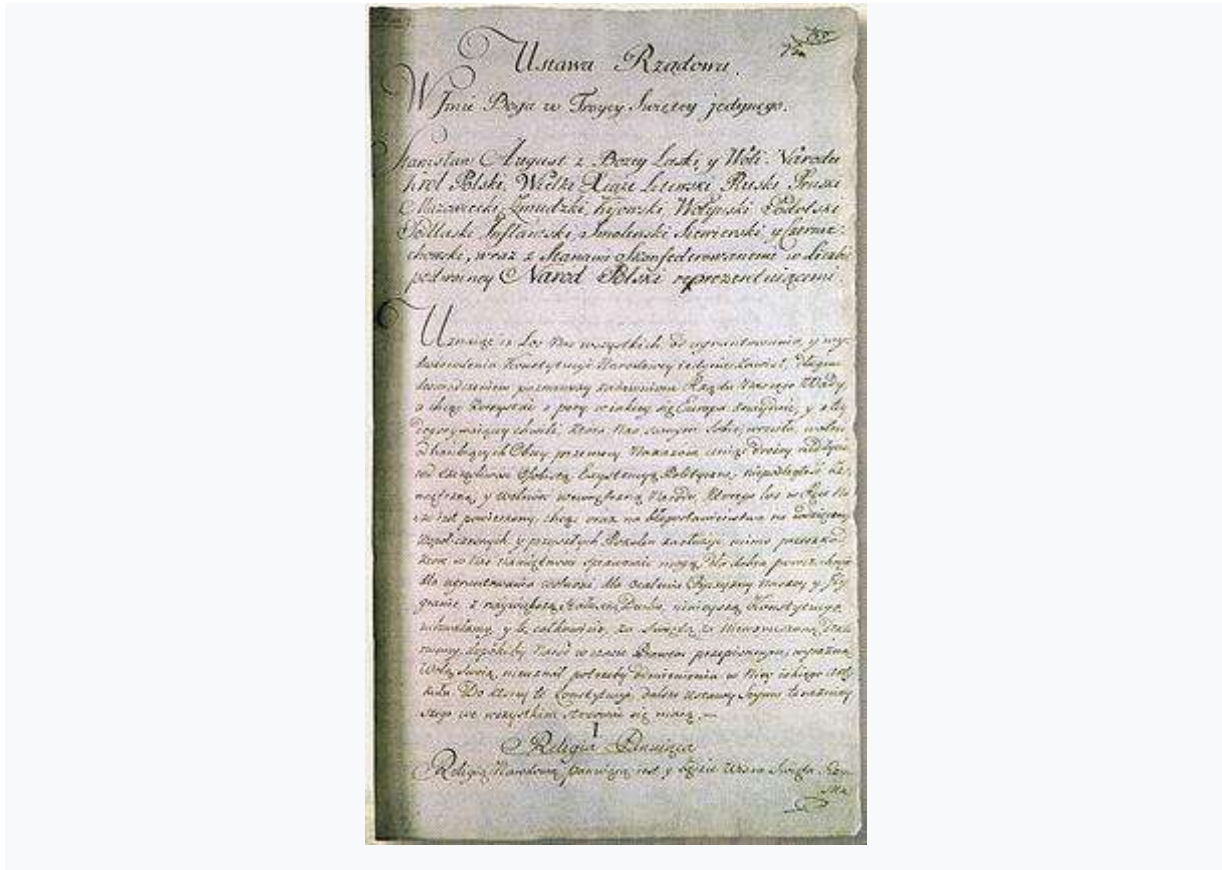 Ustawa Rządowa.
W Jmie Boga w Troycy Swiętey jedynego.
Stanisław August z Bożey Łaski, y Woli Narodu
Krol Polski, Wielki Xiąże Litewski, Ruski, Pruski
Mazowiecki, Zmudzki, Kyowski, Wołynski, Podolski
Podlaski, Inflantski, Smolenski, Siewierski y Czernie-
chowski, wraz z Stanami Skonfederowanemi w liczbie
podwoyney Naród Polski reprezentuiącemi
Uznaiąc iż Los Nas wszystkich od ugruntowania, y wy-
Konstytucyi Narodowey iedynie zawisł, długim
doswiadczeniem poznawszy Rządu Naszego Wady,
a chcąc korzystać z pory w iakiey się Europa znayduie, y z tey
chwili, ktora Nas samym Sobie wrociła, wolni
Obcey przemocy Nakazow, ceniąc drożey nad życie
Exystencyą Polityczną, niepodległość ze-
wnętrzną, y wolność wewnętrzną Narodu, ktorego los w Ręce Na-
sze iest powierzony, chcąc oraz na na
y przyszłych Pokolen zasłużyć, mimo przeszkod
ktore w Nas sprawować mogą, dla dobra
dla ugruntowania wolnosci, dla ocalenia Oyczyzny Naszey y Jey
granic, z naywiększą Stałoscią Ducha, ninieyszą Konstytucyę
uchwalamy, y tę całkowicie za Swiętą, za Niewzruszoną
dopokiby Narod w czasie Prawem przepisanym, wyraźną
Wolą Swoią, nieuznał potrzeby odmienienia w Niey iakiego arty-
kułu. Do ktorey to Konstytucyi dalsze Ustawy Seymu terazniey-
szego we wszystkim stosować się maią.
I
Religia Panuiąca
Religią Narodową panuiącą iest y będzie Wiara Swięta Rzym-
ska